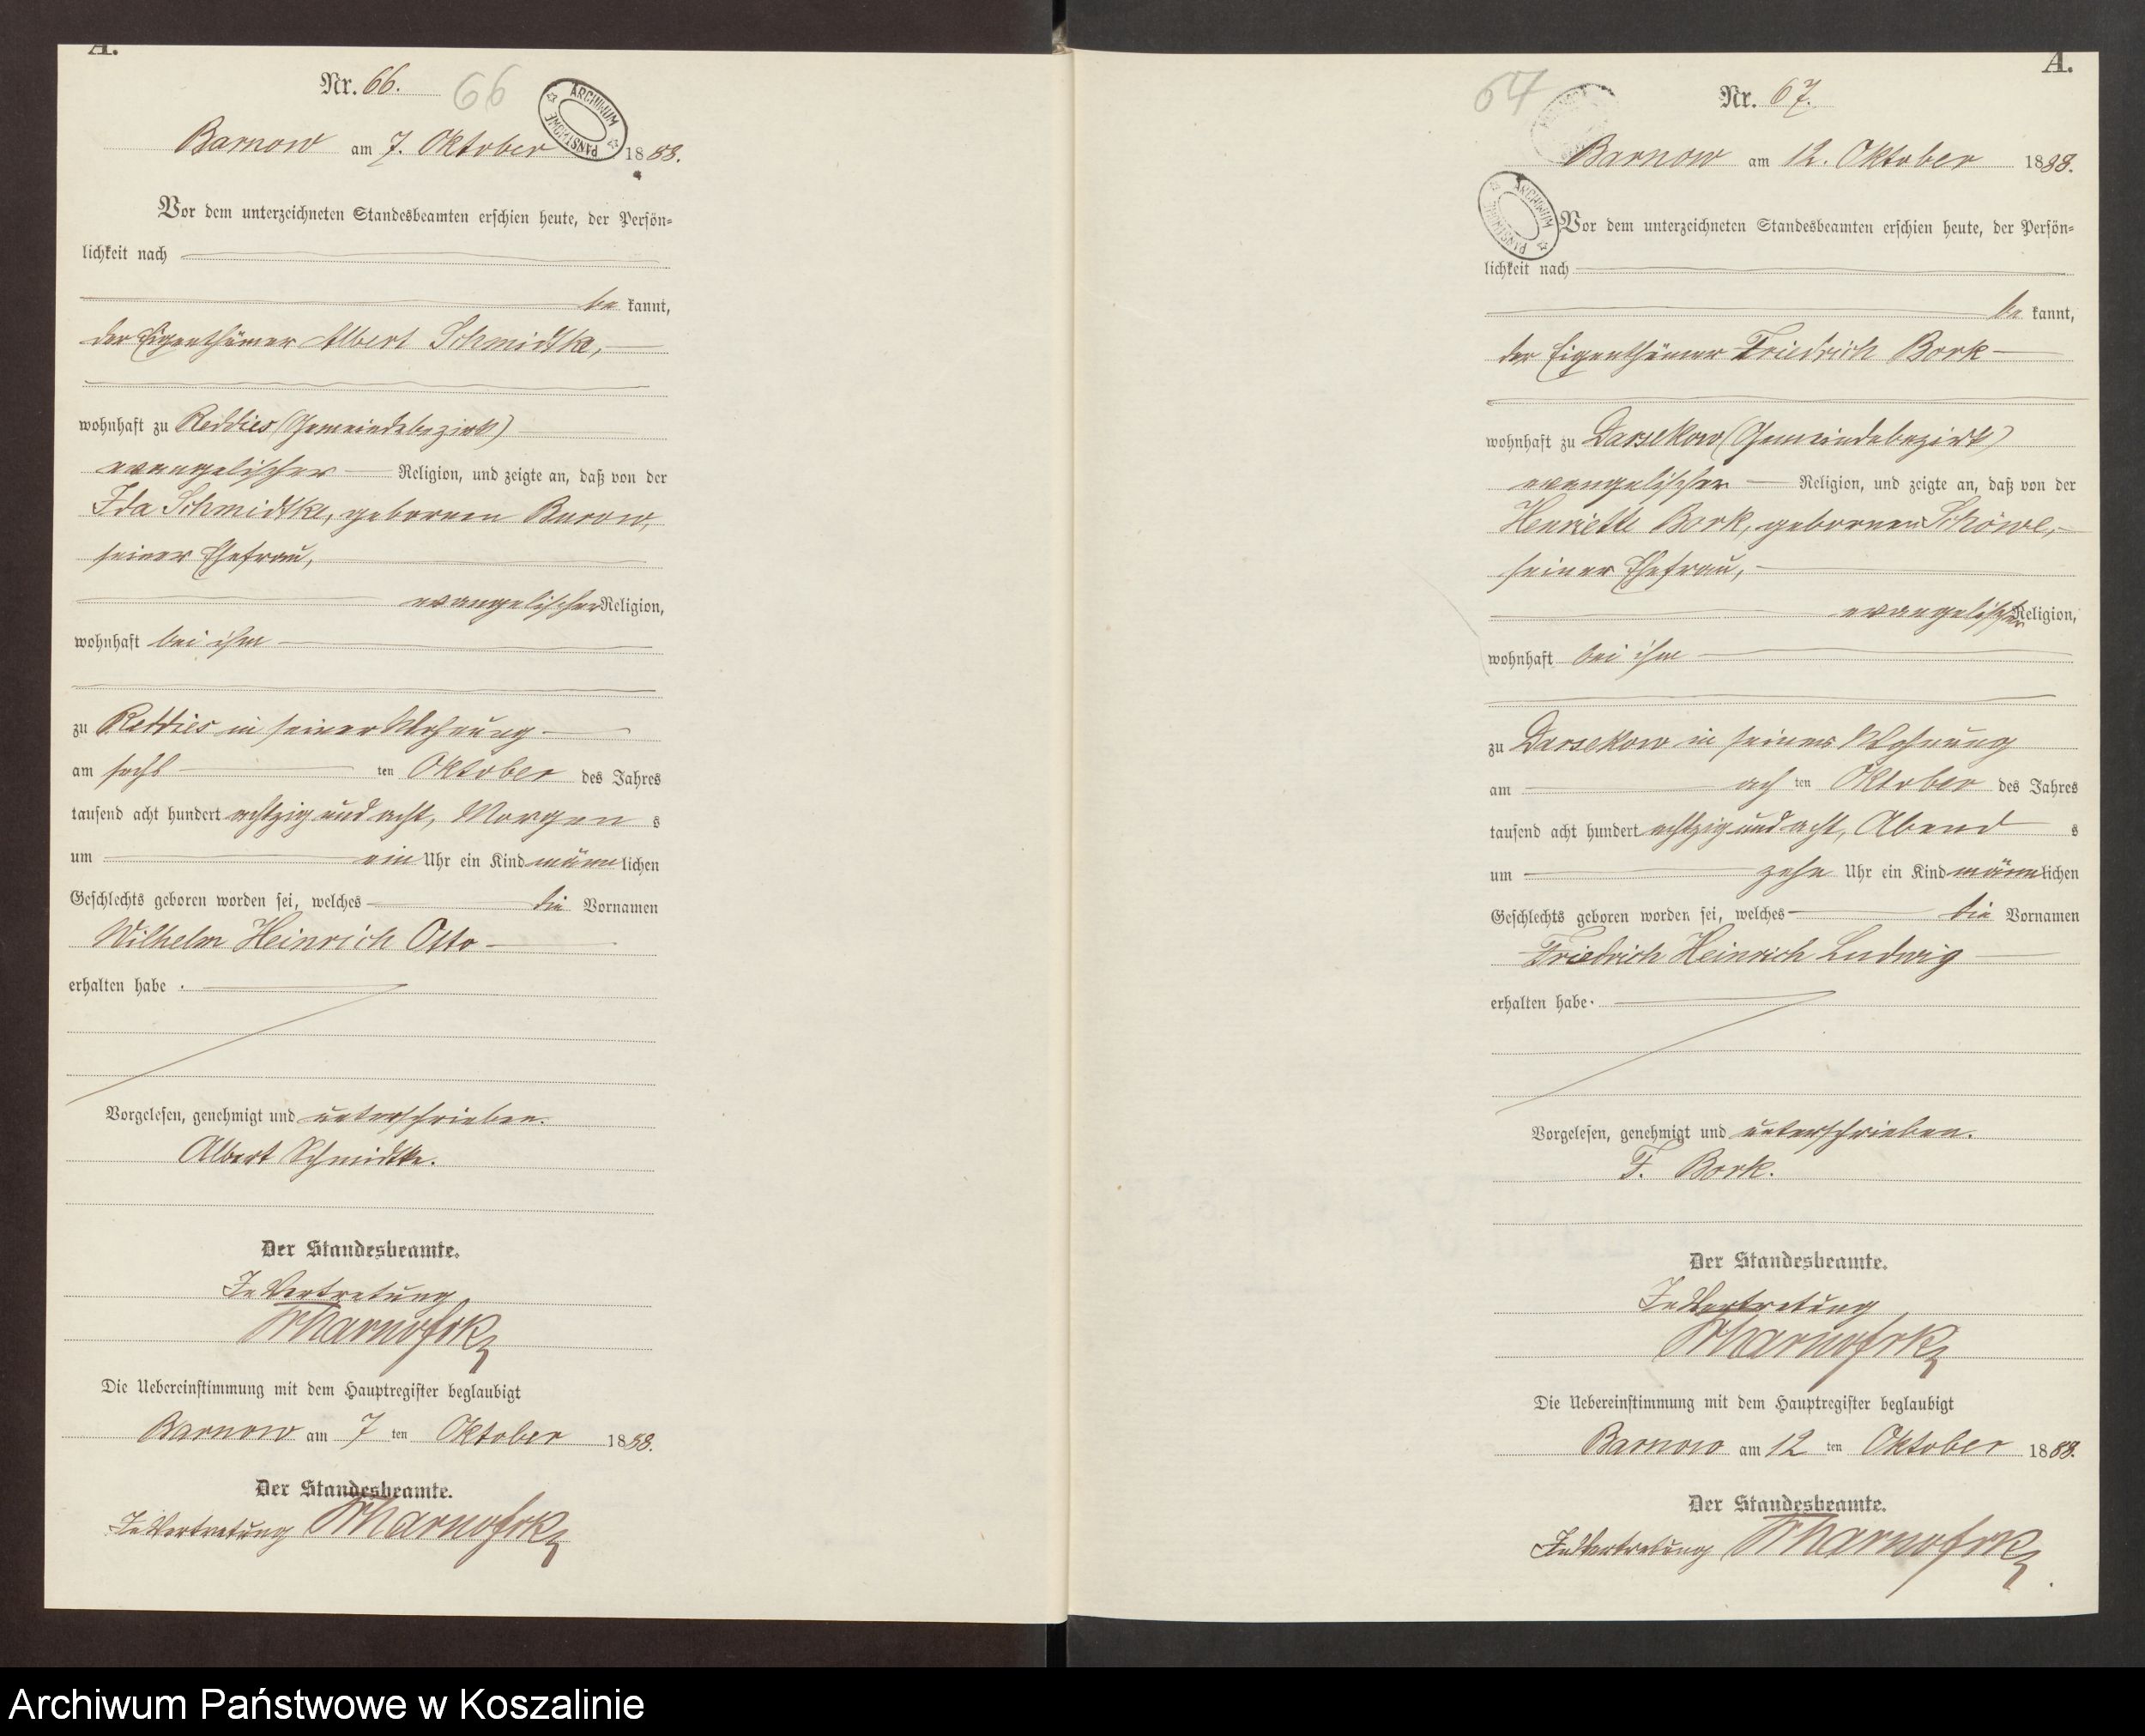 A.
Nr. 66.
66
ARCHIWUM PAŃSTWOWE
Barnow am 7. Oktober 1888.
Vor dem unterzeichneten Standesbeamten erschien heute, der Persön-
lichkeit nach
be kannt,
der Eigenthümer Albert Schmidtke,
wohnhaft zu Reddies (Gemeindebezirk)
evangelischer Religion, und zeigte an, daß von der
Ida Schmidtke, geborenen Burow,
seiner Ehefrau,
evangelischer Religion,
wohnhaft bei ihm
zu Reddies in seiner Wohnung
am sechs ten Oktober des Jahres
tausend acht hundert achtzig und acht, Morgen s
um ein Uhr ein Kind männ lichen
Geschlechts geboren worden sei, welches die Vornamen
Wilhelm Heinrich Otto
erhalten habe.
Vorgelesen, genehmigt und unterschrieben.
Albert Schmidtke.
Der Standesbeamte.
In Vertretung
Die Uebereinstimmung mit dem Hauptregister beglaubigt
Barnow am 7 ten Oktober 1888.
Der Standesbeamte.
In Vertretung
A.
67
Nr. 67.
Barnow am 12. Oktober 1888.
ARCHIWUM PAŃSTWOWE
Vor dem unterzeichneten Standesbeamten erschien heute, der Persön-
lichkeit nach
be kannt,
der Eigenthümer Friedrich Bork
wohnhaft zu Darsekow (Gemeindebezirk)
evangelischer Religion, und zeigte an, daß von der
Henriette Bork, geborenen Schöwe,
seiner Ehefrau,
evangelischer Religion,
wohnhaft bei ihm
zu Darsekow in seiner Wohnung
am ach ten Oktober des Jahres
tausend acht hundert achtzig und acht, Abend s
um zehn Uhr ein Kind männlichen
Geschlechts geboren worden sei, welches die Vornamen
Friedrich Heinrich Ludwig
erhalten habe.
Vorgelesen, genehmigt und unterschrieben.
F. Bork.
Der Standesbeamte.
In Vertretung
Die Uebereinstimmung mit dem Hauptregister beglaubigt
Barnow am 12 ten Oktober 1888.
Der Standesbeamte.
In Vertretung
Archiwum Państwowe w Koszalinie